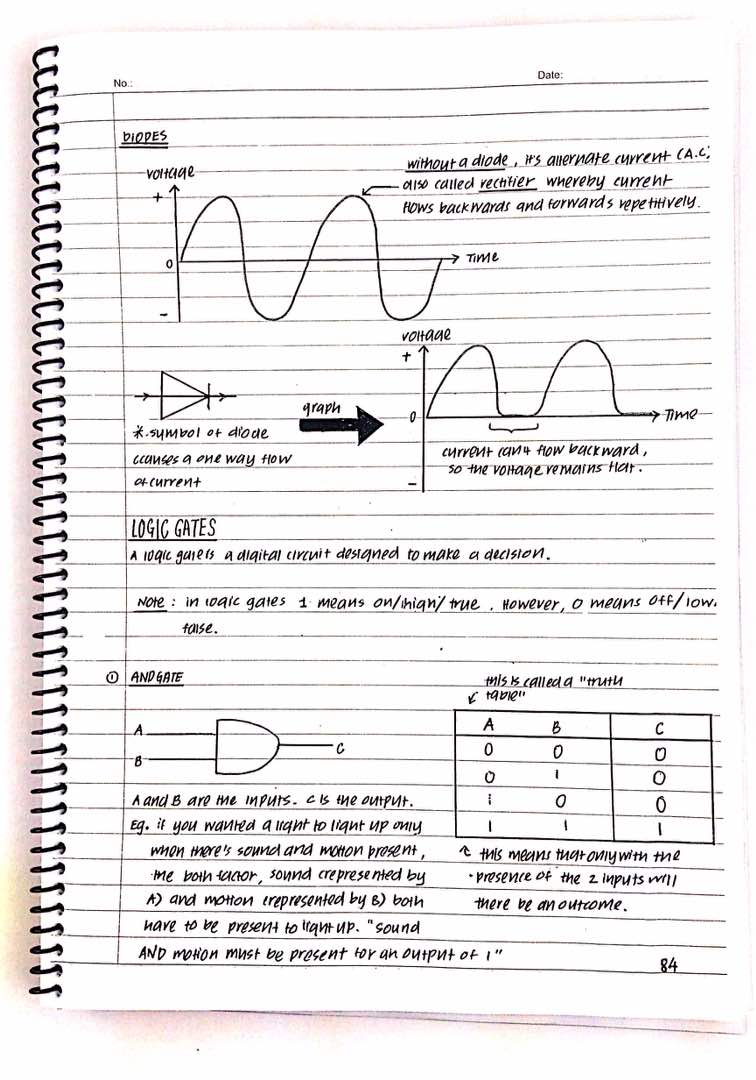 No.:
Date:
DIODES
without a diode, it's alternate current (A.C;
also called rectifier whereby current
flows backwards and forwards repetitively.
voltage
+
0
-
Time
voltage
+
0
-
Time
graph
*.symbol of diode
(causes a one way flow
of current
current can't flow backward,
so the voltage remains flat.
LOGIC GATES
A logic gate is a digital circuit designed to make a decision.
Note : in logic gates 1 means on/high/ true . However, 0 means off/low.
false.
① AND GATE
this is called a "truth
table"
A
B
C
A B C
0 0 0
0 1 0
1 0 0
1 1 1
A and B are the inputs. C is the output.
Eg. if you wanted a light to light up only
when there's sound and motion present,
the both factor, sound (represented by
A) and motion (represented by B) both
have to be present to light up. "sound
AND motion must be present for an output of 1"
this means that only with the
presence of the 2 inputs will
there be an outcome.
84